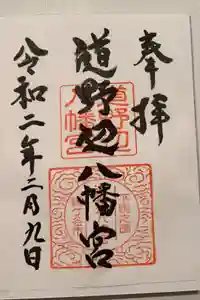 奉拝
道野辺八幡宮
令和二年二月九日